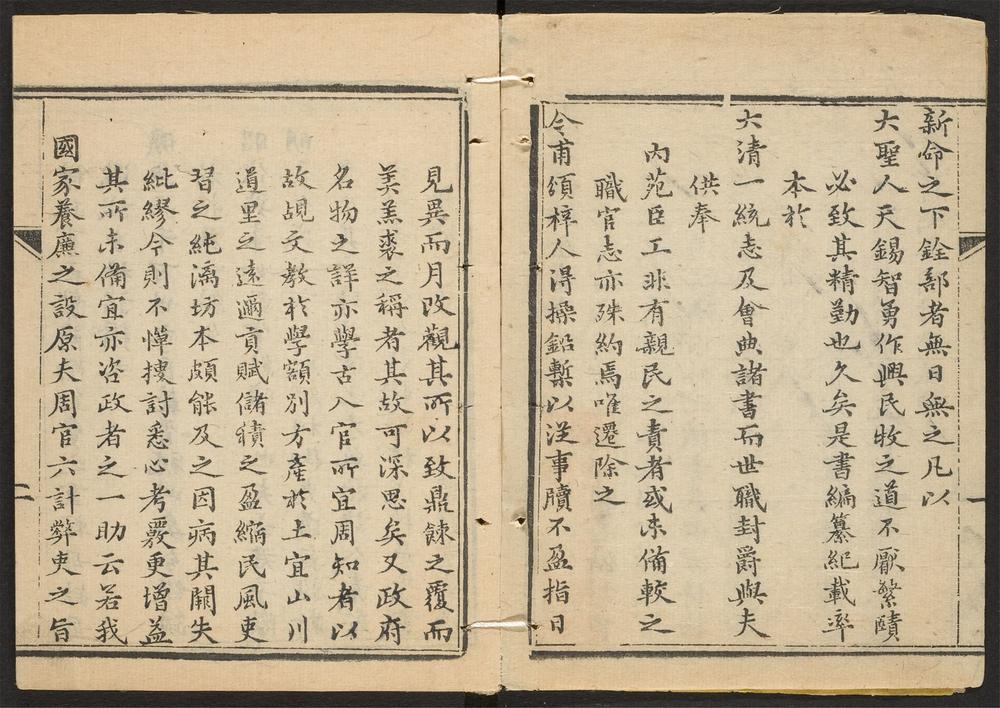 新命之下銓部者無日無之凡以
大聖人天錫智勇作興民牧之道不厭繁賾
必致其精勤也久矣是書編纂紀載率
本於
大清一統志及會典諸書而世職封爵與夫
供奉
內苑臣工非有親民之責者或未備較之
職官志亦殊約焉唯遷除之
令甫頒梓人得操鉛槧以從事牘不盈指日
見異而月改觀其所以致鼎餗之覆而
美羔裘之稱者其故可深思矣又政府
名物之詳亦學古入官所宜周知者以
故覘文教於學額別方產於土宜山川
道里之遠邇貢賦儲積之盈縮民風吏
習之純漓坊本頗能及之因病其闕失
紕繆今則不憚搜討悉心考覈更增益
其所未備宜亦咨政者之一助云若我
國家養廉之設原夫周官六計弊吏之旨
一
二